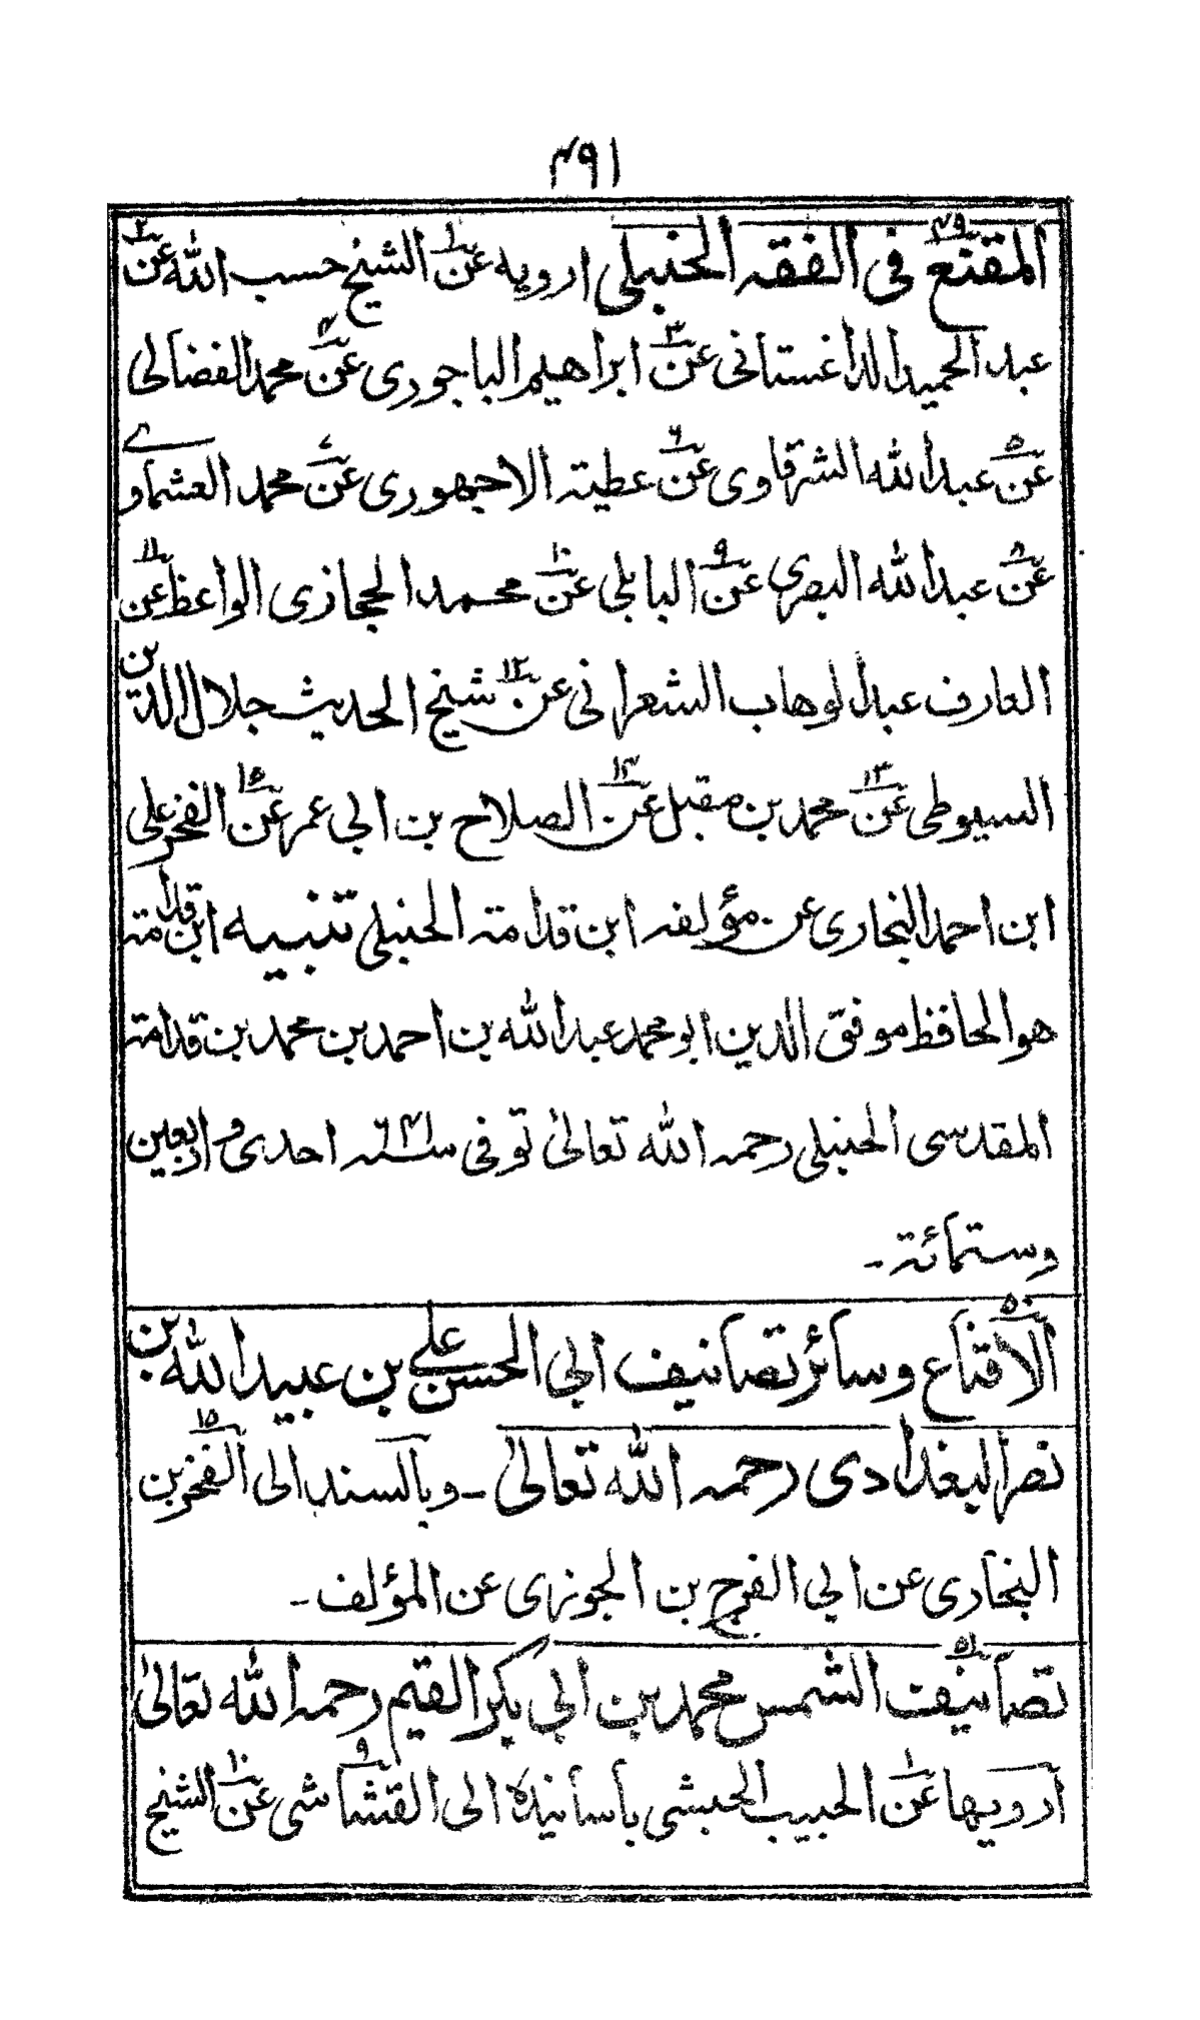 ٤٩١
٤٩ المقنع فی الفقه الحنبلی ارویه عن١ الشیخ حسب الله عن٢
عبد الحمید الداغستانی عن٣ ابراهیم الباجوری عن٤ محمد الفضالی
عن٥ عبد الله الشرقاوی عن٦ عطیة الاجهوری عن٧ محمد العشماوی
عن٨ عبد الله البصری عن٩ البابلی عن١٠ محمد الحجازی الواعظ عن١١
العارف عبد الوهاب الشعرانی عن١٢ شیخ الحدیث جلال الدین
السیوطی عن١٣ محمد بن مقبل عن١٤ الصلاح بن ابی عمر عن١٥ الفخر علی
ابن احمد البخاری عن مؤلفه ابن قدامة الحنبلی تنبیه ابن قدامة
هو الحافظ موفق الدین ابو محمد عبد الله بن احمد بن محمد بن قدامة
المقدسی الحنبلی رحمه الله تعالیٰ توفی سنة ٦٤١ احدی و اربعین
وستمائة۔
٥٠ الاقناع وسائر تصانیف ابی الحسن علی بن عبید الله بن
نصر البغدادی رحمه الله تعالیٰ۔ وبالسند الی الفخر١٥ بن
البخاری عن ابی الفرج بن الجوزی عن المؤلف۔
٥١ تصانیف الشمس محمد بن ابی بکر القیم رحمه الله تعالیٰ
ارویها عن١ الحبیب الحبشی بأسانیده الی القشاشی٩ عن١٠ الشیخ